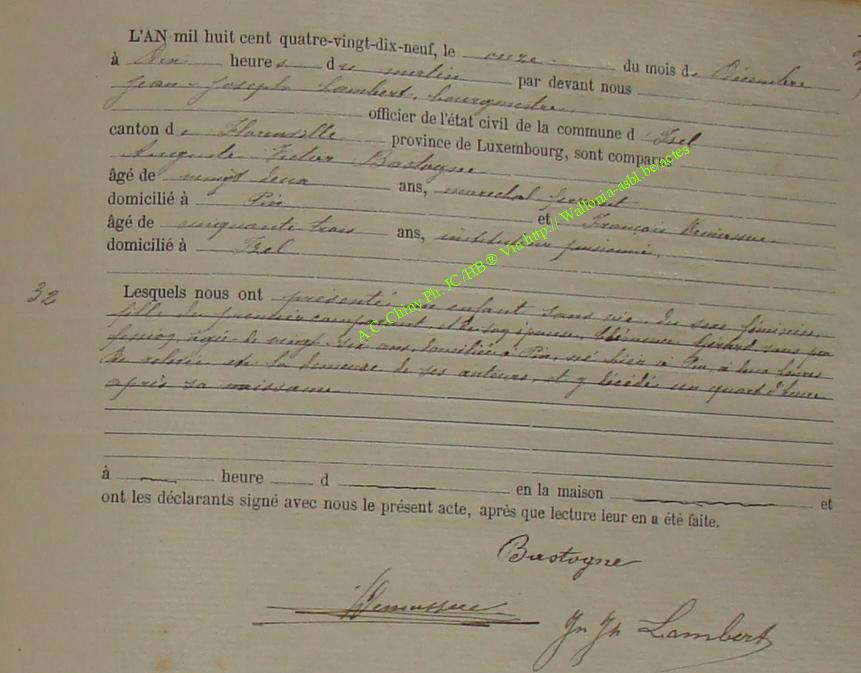 L'AN mil huit cent quatre-vingt-dix-neuf, le onze du mois de Décembre
à Dix heures du matin par devant nous
Jean-Joseph Lambert, bourgmestre
officier de l'état civil de la commune d'Izel
canton de Florenville province de Luxembourg, sont comparus
Auguste Victor Bastogne
âgé de vingt deux ans, maréchal ferrant
domicilié à Pin et François
âgé de cinquante trois ans, instituteur pensionné,
domicilié à Izel
32
Lesquels nous ont présenté un enfant sans vie, du sexe féminin,
fille du premier comparant et de son épouse, Clémence Girard sans pro
fession, agée de vingt-six ans, domiciliée à Pin, né hier à Pin, à deux heures
de relevée en la demeure de ses auteurs, et y décédé un quart d'heure
après sa naissance
à heure d en la maison et
ont les déclarants signé avec nous le présent acte, après que lecture leur en a été faite.
Bastogne
Jn Jh Lambert
A C- Chiny Ph JC /HB® Via http:// Wallonia-asbl.be/actes